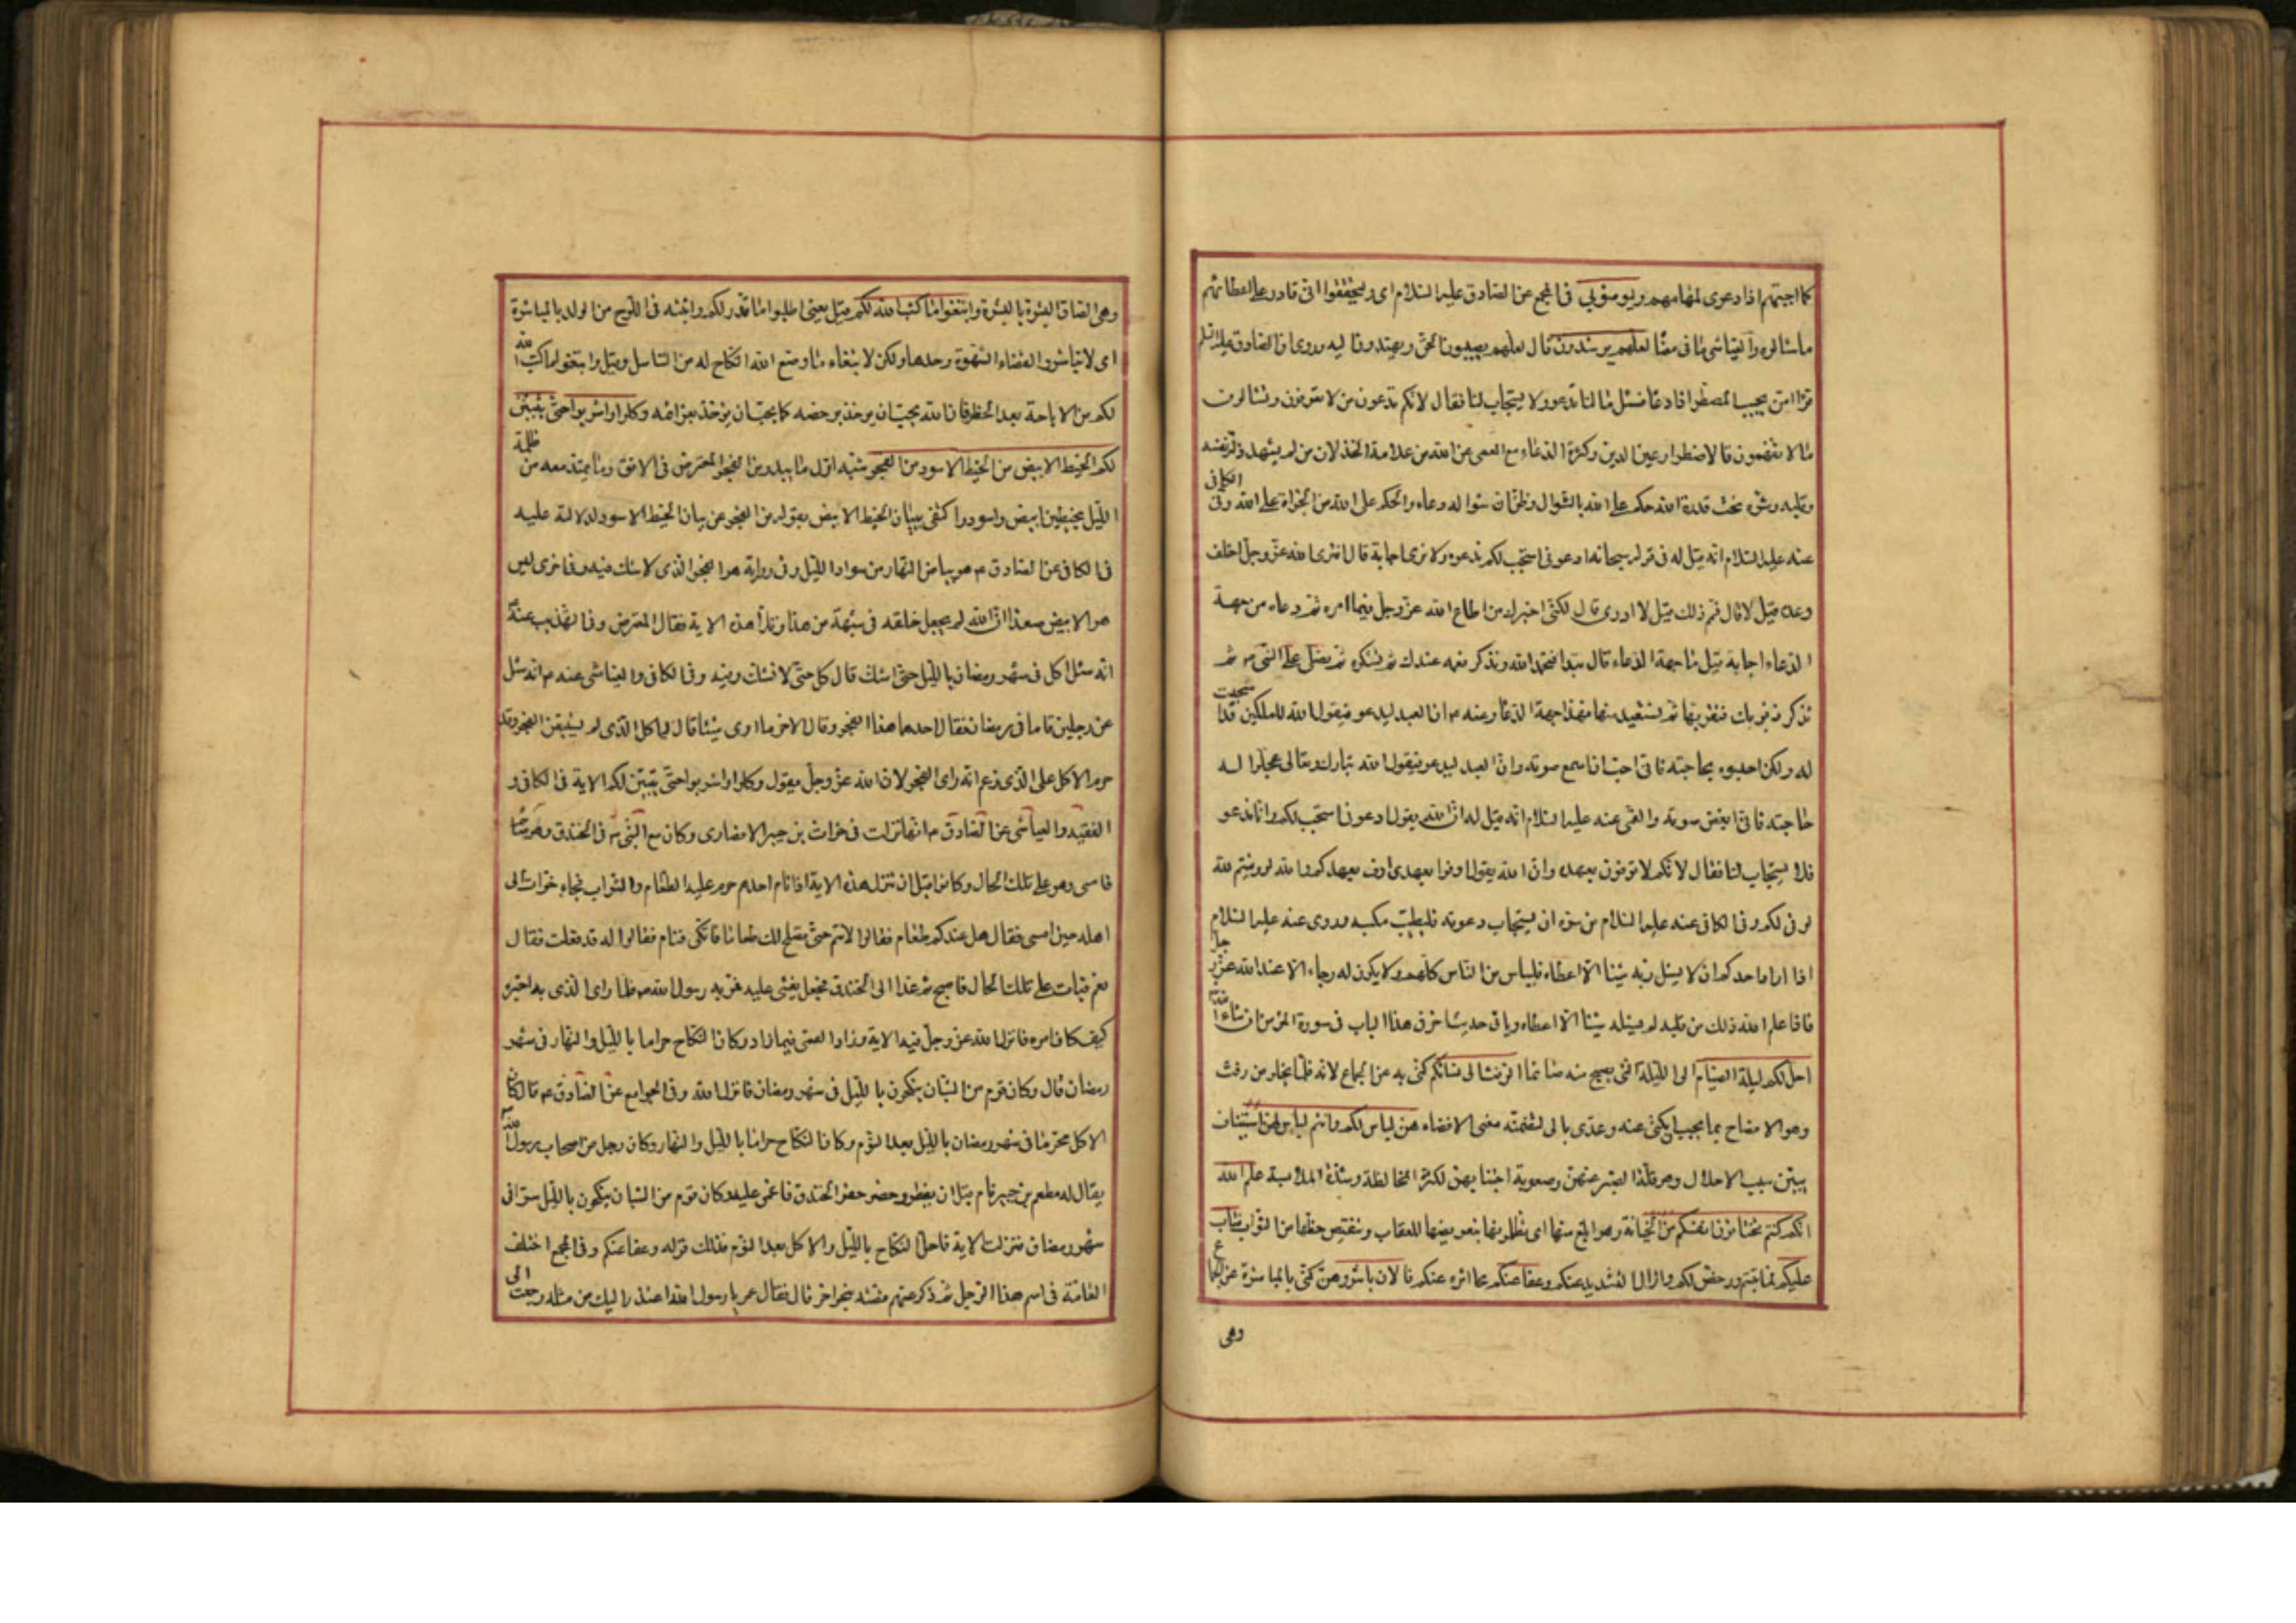 كما اجبتهم اذا دعوني لمهامهم وليؤمنوا بي في المجمع عن الصادق عليه السلام اي وليتحققوا اني قادر على اعطائهم
ما سئالوه والعياشي ما في معناه لعلهم يرشدون قال لعلهم يصيبون الحق ويهتدون اليه وروى ان الصادق عليه السلم
قرا امن يجيب المضطر اذا دعاه فسئل ما لنا ندعو ولا يستجاب لنا فقال لانكم تدعون من لا تعرفون وتسئالون
ما لا تفهمون فالاضطرار عين الدين وكثرة الدعاء مع العمى عن الله من علامة الخذلان من لم يشهد ذلة نفسه
وقلبه وسره تحت قدرة الله حكم على الله بالسوال وظن ان سواله دعاء والحكم على الله من الجراة على الله وفي الكافي
عنه عليه السلام انه قيل له في قوله سبحانه ادعوني استجب لكم ندعوه ولا نرى اجابة قال افترى الله عز وجل اخلف
وعده قيل لا قال فمم ذلك قيل لا ادري قال لكني اخبرك من اطاع الله عز وجل فيما امره ثم دعاه من جهة
الدعاء اجابه قيل ما جهة الدعاء قال تبدا فتحمد الله وتذكر نعمه عندك ثم تشكره ثم تصلي على النبي ص ثم
تذكر ذنوبك فتقر بها ثم تستعيذ منها فهذا جهة الدعاء وعنه ع ان العبد ليدعو فيقول الله للملكين قد استجبت
له ولكن احبسوه بحاجته فاني احب ان اسمع صوته وان العبد ليدعو فيقول الله تبارك وتعالى عجلوا له
حاجته فاني ابغض صوته والقمي عنه عليه السلام انه قيل له ان الله يقول ادعوني استجب لكم وانا ندعو
فلا يستجاب لنا فقال لانكم لا توفون بعهده وان الله يقول اوفوا بعهدي اوف بعهدكم والله لو وفيتم لله
لوفى لكم وفي الكافي عنه عليه السلام من سره ان يستجاب دعوته فليطيب مكسبه وروى عنه عليه السلام
اذا اراد احدكم ان لا يسئل ربه شيئا الا اعطاه فليياس من الناس كلهم ولا يكون له رجاء الا عند الله عز وجل
فاذا علم الله ذلك من قلبه لم يسئله شيئا الا اعطاه وياتي حديث اخر في هذا الباب في سورة المؤمن ان شاء الله
احل لكم ليلة الصيام اي الليلة التي يصبح منه صائما الرفث الى نسائكم كنى به عن الجماع لانه قلما يخلو من رفث
وهو الافصاح بما يجب ان يكنى عنه وعدي بالى لتضمنه معنى الافضاء هن لباس لكم وانتم لباس لهن استيناف
يبين سبب الاحلال وهو قلة الصبر عنهن وصعوبة اجتنابهن لكثرة المخالطة وشدة الملابسة علم الله
انكم كنتم تختانون انفسكم من الخيانة وهو ابلغ منها اي تظلمونها بتعريضها للعقاب وتنقيص حظها من الثواب فتاب
عليكم لما تبتم ورخص لكم وازال التشديد عنكم وعفا عنكم محا اثره عنكم فالان باشروهن كنى بالمباشرة عن الجماع
وهي
وهي الصاق البشرة بالبشرة وابتغوا ما كتب الله لكم قيل يعني اطلبوا ما قدر لكم واثبته في اللوح من الولد بالمباشرة
اي لا تباشروا لقضاء الشهوة وحدها ولكن لابتغاء ما وضع الله النكاح له من التناسل وقيل وابتغوا ما كتب الله
لكم من الاباحة بعد الحظر فان الله يحب ان يوخذ برخصه كما يحب ان يؤخذ بعزائمه وكلوا واشربوا حتى يتبين
لكم الخيط الابيض من الخيط الاسود من الفجر شبه اول ما يبدو من الفجر المعترض في الافق وما يمتد معه من ظلمة
الليل بخيطين ابيض واسود واكتفى ببيان الخيط الابيض بقوله من الفجر عن بيان الخيط الاسود لدلالته عليه
في الكافي عن الصادق ع هو بياض النهار من سواد الليل وفي رواية هو الفجر الذي لا شك فيه وفي اخرى ليس
هو الابيض صعدا ان الله لم يجعل خلقه في شبهة من هذا وتلا هذه الاية فقال المعترض وفي التهذيب عنه ع
انه سئل اكل في شهر رمضان بالليل حتى اشك قال كل حتى لا تشك وفيه وفي الكافي والعياشي عنه ع انه سئل
عن رجلين قاما في رمضان فقال احدهما هذا الفجر وقال الاخر ما ارى شيئا قال لياكل الذي لم يستيقن الفجر وقد
حرم الاكل على الذي زعم انه راى الفجر لان الله عز وجل يقول وكلوا واشربوا حتى يتبين لكم الاية في الكافي و
الفقيه والعياشي عن الصادق ع انها نزلت في خوات بن جبير الانصاري وكان مع النبي ص في الخندق وهو صائم
فامسى وهو على تلك الحال وكانوا قبل ان تنزل هذه الاية اذا نام احدهم حرم عليه الطعام والشراب فجاء خوات الى
اهله حين امسى فقال هل عندكم طعام فقالوا لا تنم حتى نصلح لك طعاما فاتكى فنام فقالوا له قد فعلت فقال
نعم فبات على تلك الحال فاصبح ثم غدا الى الخندق فجعل يغشى عليه فمر به رسول الله ص فلما راى الذي به اخبره
كيف كان امره فانزل الله عز وجل فيه الاية وزاد القمي فيما زاد وكان النكاح حراما بالليل والنهار في شهر
رمضان قال وكان قوم من الشبان ينكحون بالليل في شهر رمضان فانزل الله وفي الجوامع عن الصادق ع قال كان
الاكل محرما في شهر رمضان بالليل بعد النوم وكان النكاح حراما بالليل والنهار وكان رجل من اصحاب رسول الله ص
يقال له مطعم بن جبير نام قبل ان يفطر وحضر حفر الخندق فاغمي عليه وكان قوم من الشبان ينكحون بالليل سرا في
شهر رمضان فنزلت الاية فاحل النكاح بالليل والاكل بعد النوم فذلك قوله وعفا عنكم وفي المجمع اختلف
العامة في اسم هذا الرجل ثم ذكر عنهم قصته بنحو اخر قال فقال عمر يا رسول الله اعتذر اليك من مثله رجعت الى